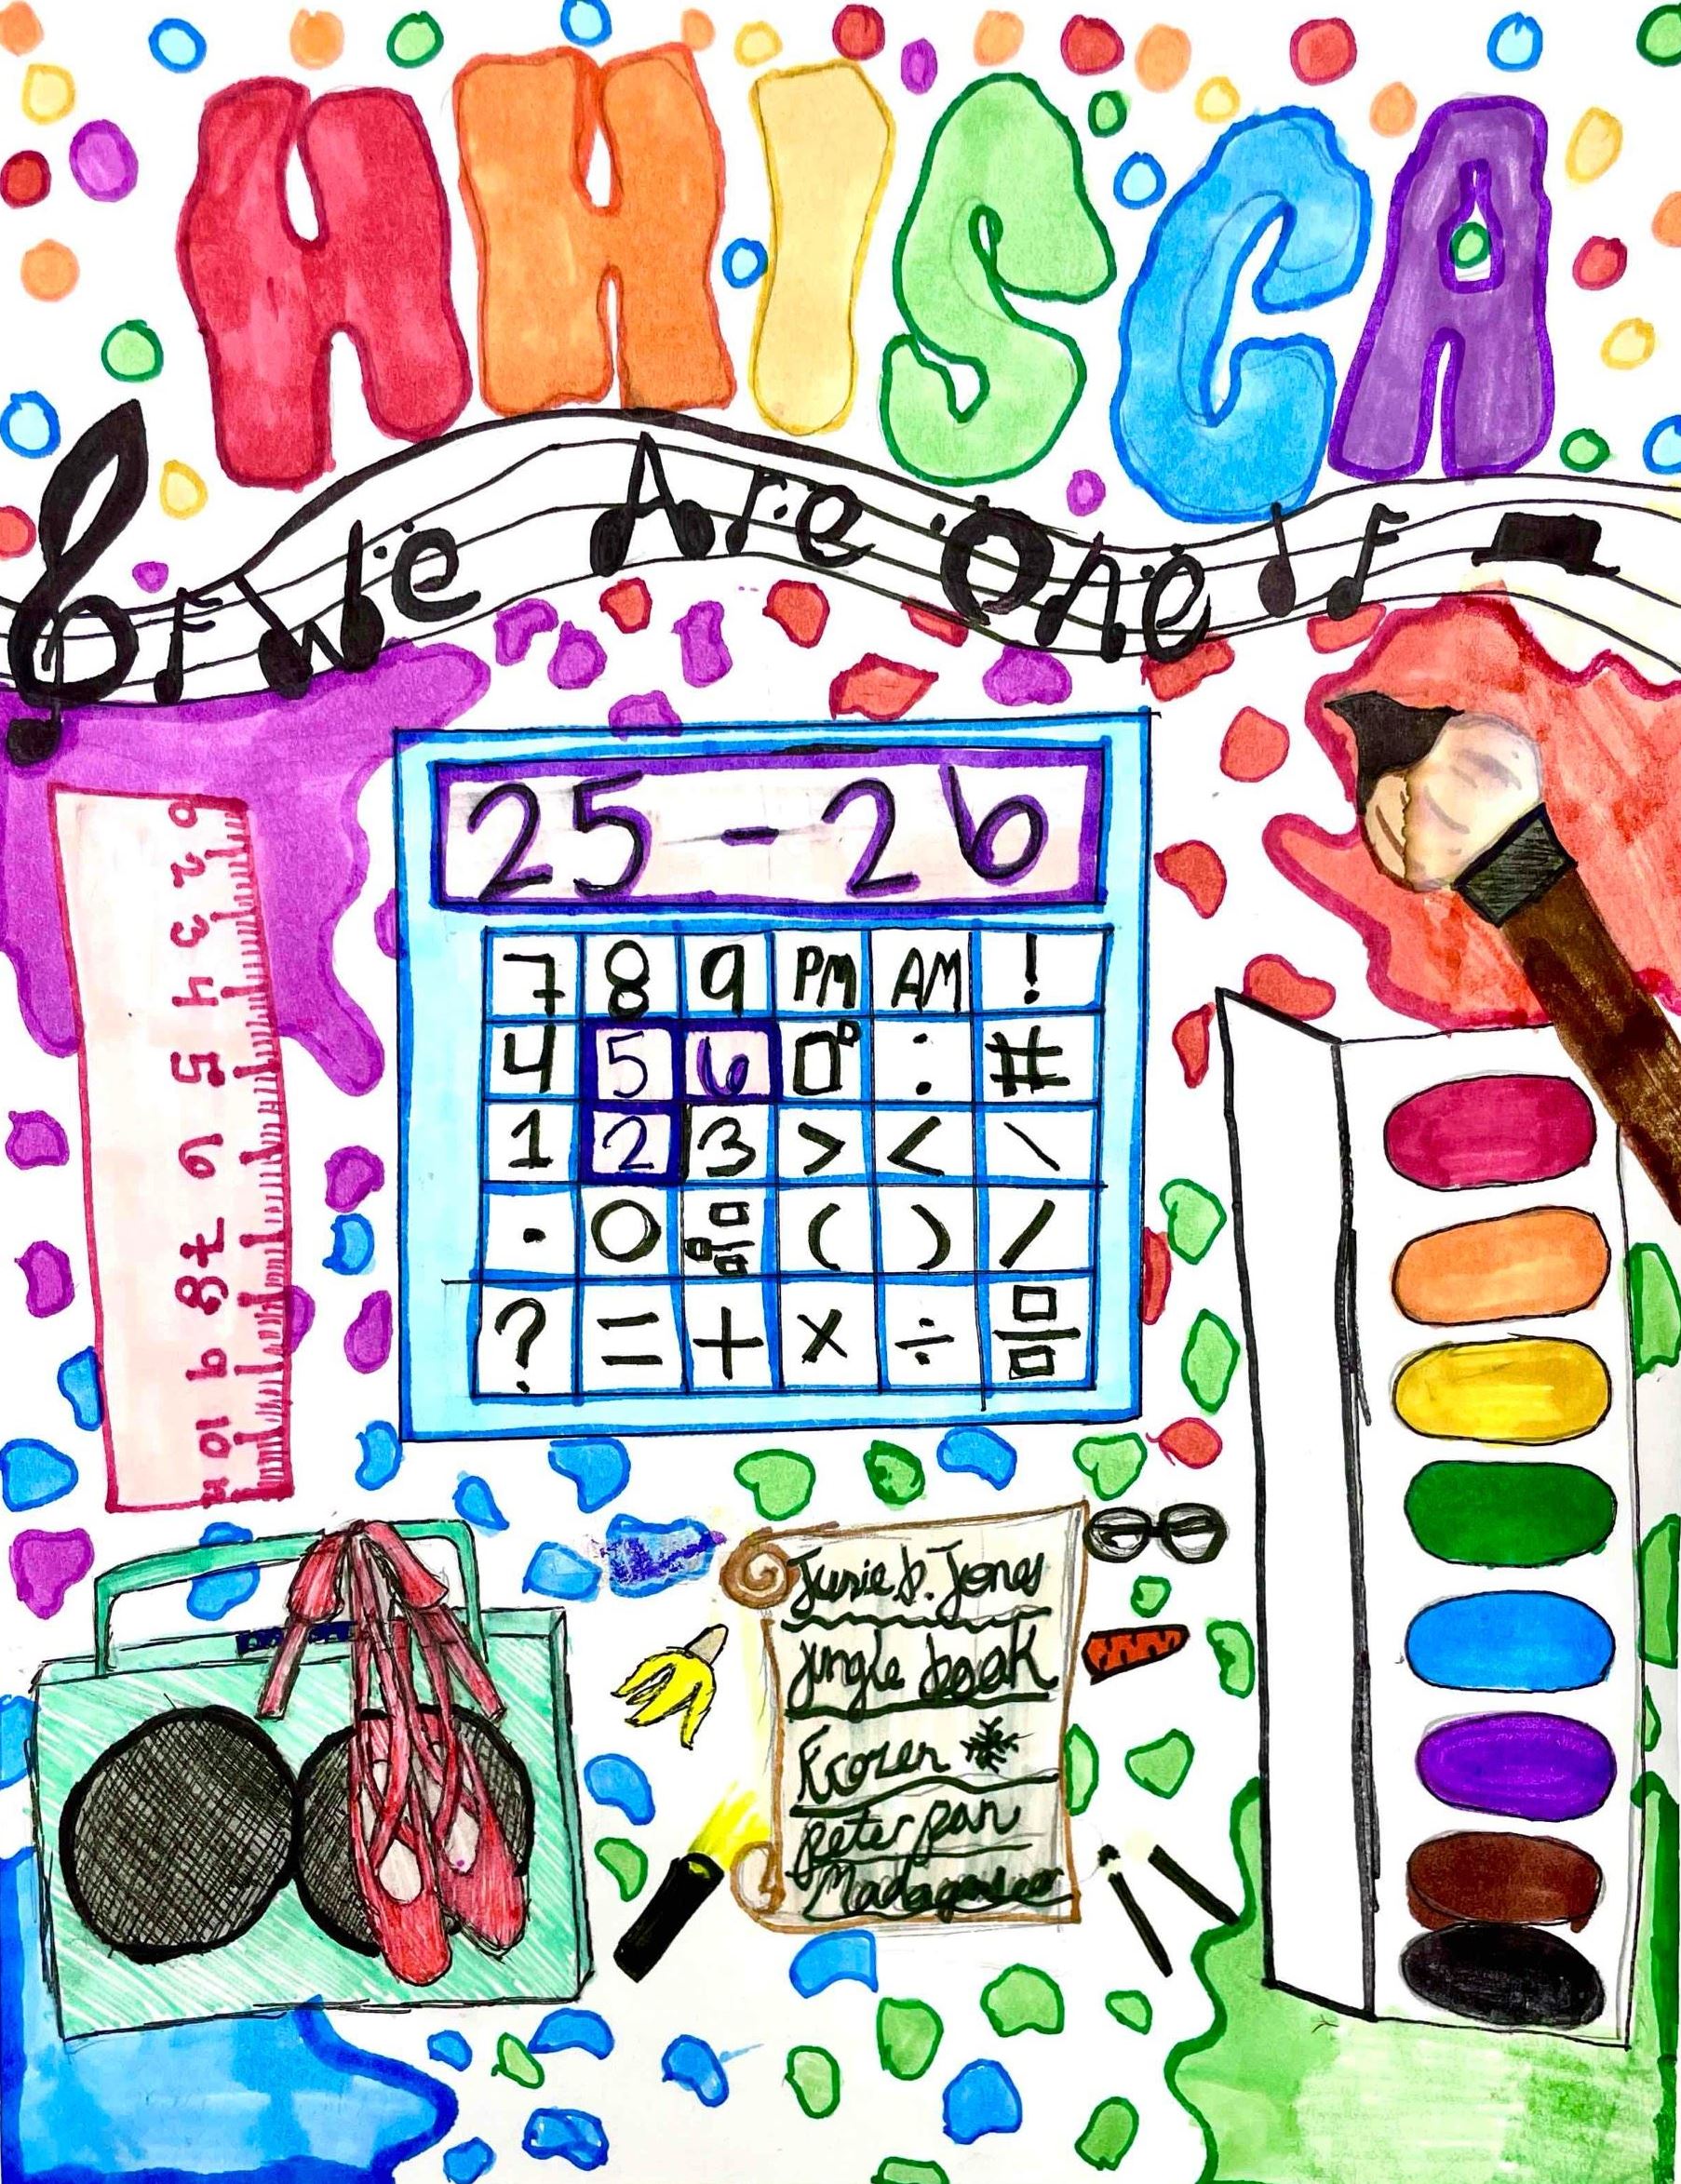 HHISCA
We Are One
25 - 26
7 8 9 PM AM !
4 5 6 □° : #
1 2 3 > < \
. 0 ( ) /
? = + × ÷
2 3 4 5 6 7 8 9 10
Junie b. Jones
jungle book
Frozen
peter pan
Madagascar